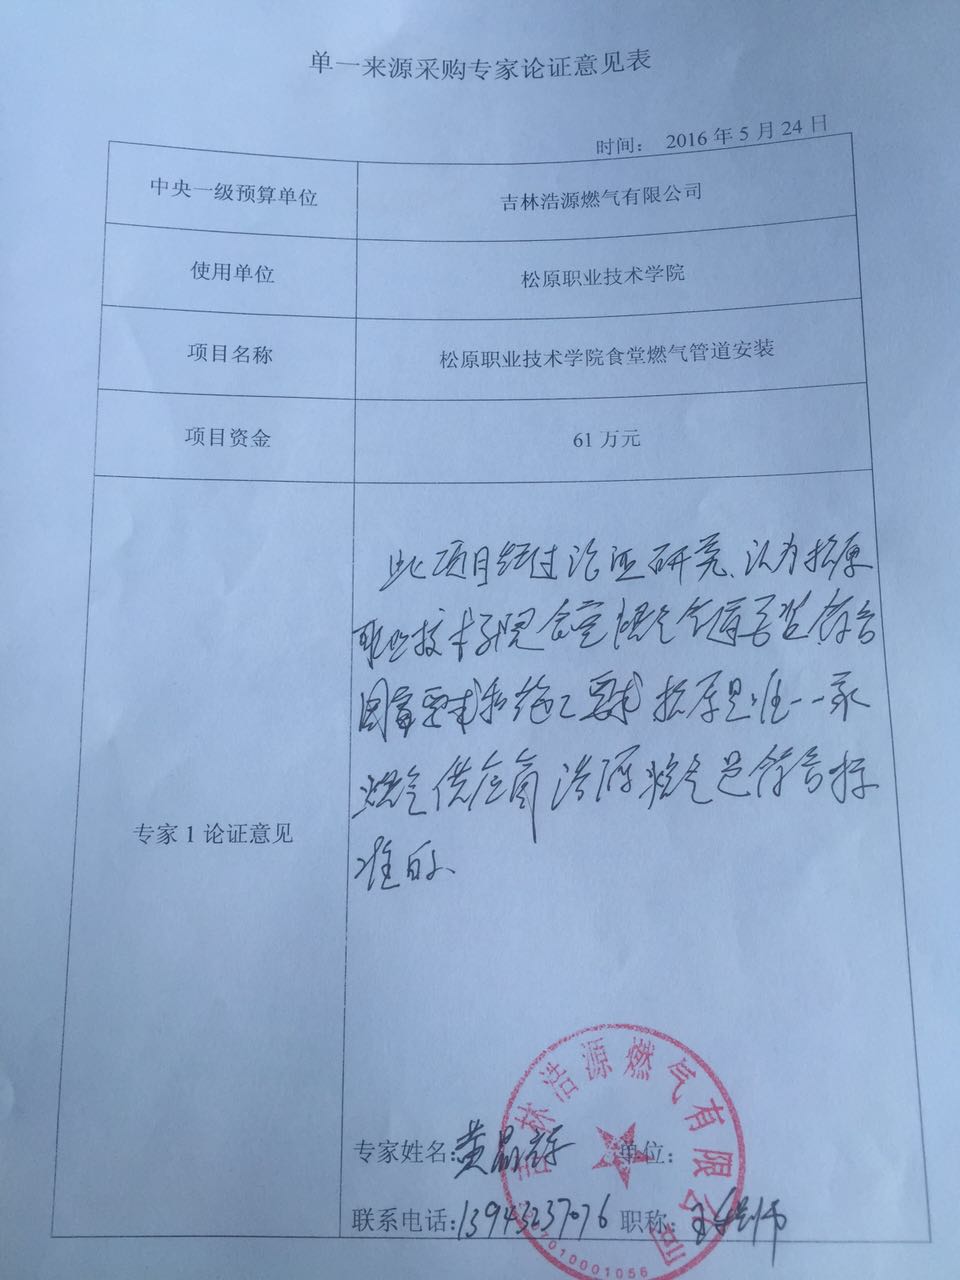 单一来源采购专家论证意见表
时间： 2016年5月24日
中央一级预算单位 吉林浩源燃气有限公司
使用单位 松原职业技术学院
项目名称 松原职业技术学院食堂燃气管道安装
项目资金 61万元
此项目经过论证研究、认为松原
职业技术学院食堂燃气管道安装符合
国家要求和施工要求 松原是唯一一家
燃气供应商 浩源燃气是符合标
准的、
专家1论证意见
吉林浩源燃气有限公司
专家姓名： 单位：
联系电话：13943237076 职称：工程师
7010001056